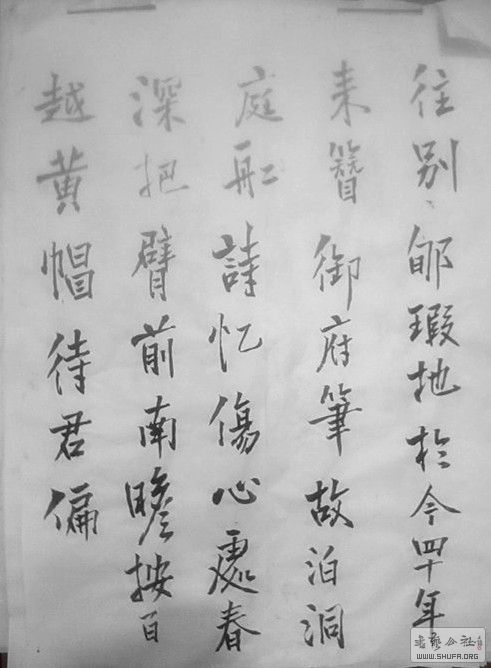 往别郇瑕地於今四十年
来簪御府筆故泊洞
庭船詩忆傷心處春
深把臂前南瞻按百
越黄帽待君偏
書藝公社
WWW.SHUFA.ORG